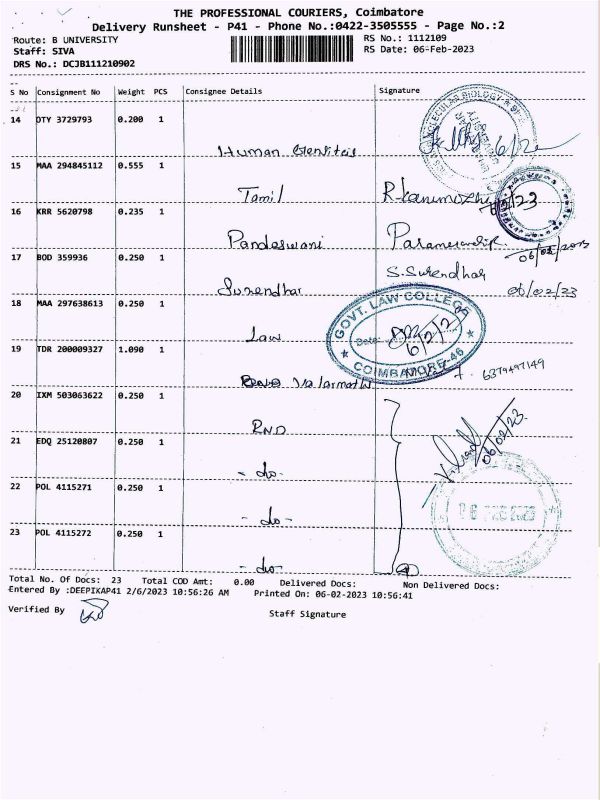 THE PROFESSIONAL COURIERS, Coimbatore
Delivery Runsheet - P41 - Phone No.:0422-3505555 - Page No.:2
Route: B UNIVERSITY
RS No.: 1112109
Staff: SIVA
RS Date: 06-Feb-2023
DRS No.: DCJB111210902
S No Consignment No Weight PCS Consignee Details Signature
14 DTY 3729793 0.200 1
Human
15 MAA 294845112 0.555 1
Tamil
16 KRR 5620798 0.235 1
Pandeswani
17 BOD 359936 0.250 1
06/02/2023
S.Surendhar
Surendhar 06/02/23
18 MAA 297638613 0.250 1
GOVT. LAW COLLEGE
Date: 6/2/23
COIMBATORE-46
Law
19 TDR 200009327 1.090 1
6379497149
Valarmathi
20 IXM 503063622 0.250 1
RND
06/02/23
21 EDQ 25120807 0.250 1
- do -
22 POL 4115271 0.250 1
- do -
23 POL 4115272 0.250 1
- do - 4
Total No. Of Docs: 23 Total COD Amt: 0.00 Delivered Docs: Non Delivered Docs:
Entered By :DEEPIKAP41 2/6/2023 10:56:26 AM Printed On: 06-02-2023 10:56:41
Verified By
Staff Signature